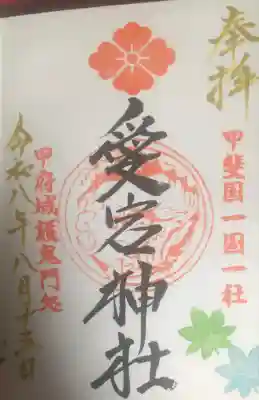 奉拝
甲斐国一国一社
愛宕神社
甲府城鬼門
令和八年八月十三日